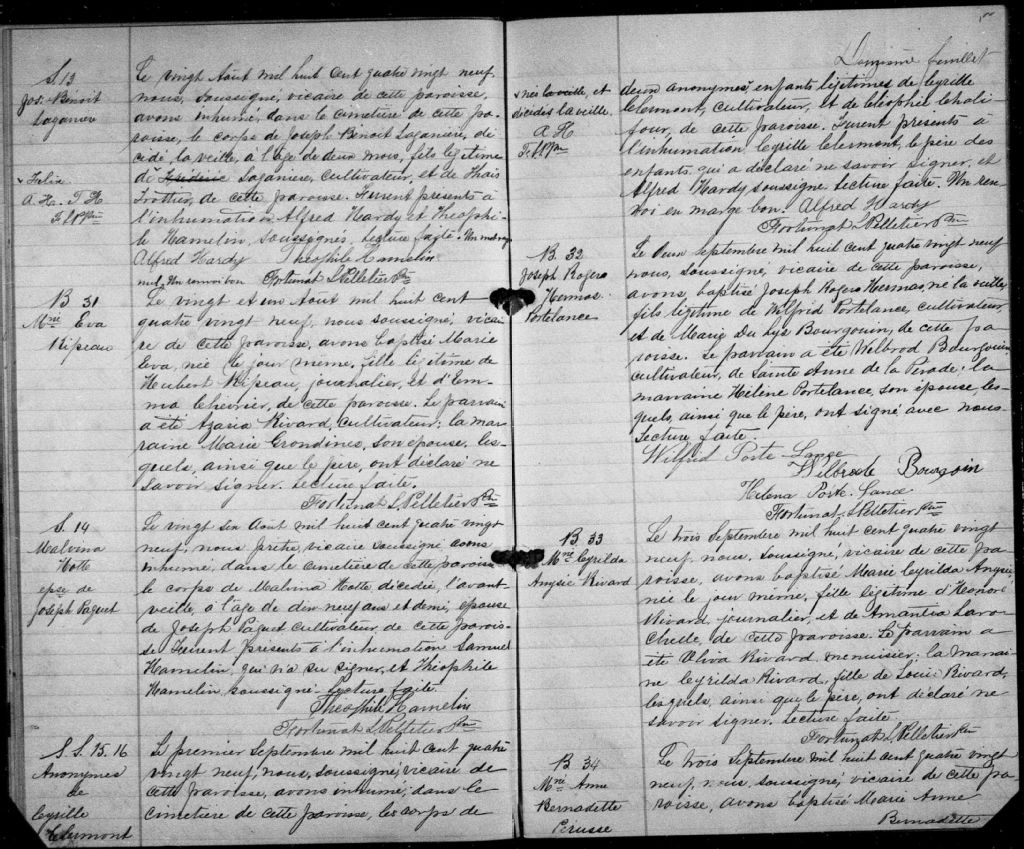 S. 13
Jos. Benoit
Laganière
Le vingt Août mil huit cent quatre vingt neuf,
nous, soussigné, vicaire de cette paroisse,
avons inhumé, dans le cimetière de cette pa-
roisse, le corps de Joseph Benoit Laganière, dé-
cédé la veille, à l'âge de deux mois, fils légitime
de Laganière, cultivateur, et de
Trottier, de cette paroisse. Furent présents à
l'inhumation Alfred Hardy et Théophi-
le Hamelin, soussignés. Lecture faite. Un mot ray
Alfred Hardy Théophile Hamelin
nul. Un renvoi bon Fortunat L Pelletier Ptre
A. H. T. H
F L P Ptre
B 31
Mrie Eva
Ripeau
Le vingt et un Août mil huit cent
quatre vingt neuf, nous soussigné, vicai-
re de cette paroisse, avons baptisé Marie
Eva, née le jour même, fille légitime de
Heubert Ripeau, journalier, et d'Em-
ma Chevrier, de cette paroisse. Le parrain
a été Azarie Rivard, cultivateur; la mar-
raine Marie Grondines, son épouse, les-
quels, ainsi que le père, ont déclaré ne
savoir signer. Lecture faite.
Fortunat L Pelletier Ptre
S. 14
Malvina
Hotte
epse de
Joseph Paquet
Le vingt six Août mil huit cent quatre vingt
neuf, nous prêtre, vicaire soussigné avons
inhumé, dans le cimetière de cette paroisse
le corps de Malvina Hotte décédée, l'avant-
veille, à l'âge de dix neuf ans et demi, épouse
de Joseph Paquet cultivateur de cette parois-
se Furent présents à l'inhumation Samuel
Hamelin, qui n'a su signer, et Théophile
Hamelin, soussigné. Lecture faite.
Théophile Hamelin
Fortunat L Pelletier Ptre
S. S. 15. 16
Anonymes
de
Cyrille
Clermont
Le premier Septembre mil huit cent quatre
vingt neuf, nous, soussigné, vicaire de
cette paroisse, avons inhumé, dans le
cimetière de cette paroisse, les corps de
feuillet
nés la veille, et
décédés la veille.
A H
F L P Ptre
deux anonymes, enfants légitimes de Cyrille
Clermont, cultivateur, et de Cléophie Chali-
four, de cette paroisse. Furent présents à
l'inhumation Cyrille Clermont, le père des
enfants, qui a déclaré ne savoir signer, et
Alfred Hardy soussigné Lecture faite. Un ren-
voi en marge bon. Alfred Hardy
Fortunat L Pelletier Ptre
B. 32
Joseph Rogers
Hermas
Portelance
Le Deux Septembre mil huit cent quatre vingt neuf
nous, soussigné, vicaire de cette paroisse,
avons, baptisé Joseph Rogers Hermas, né la veille,
fils légitime de Wilfrid Portelance, cultivateur,
et de Marie Du Lys Bourgouin, de cette pa-
roisse. Le parrain a été Welbrod Bourgouin
cultivateur, de Sainte Anne de la Pérade; la
marraine Hélène Portelance, son épouse, les-
quels, ainsi que le père, ont signé avec nous.
Lecture faite.
Wilfrid Porte Lance
Wilbrode Bourgoin
Helena Porte-Lance
Fortunat L Pelletier Ptre
B 33
Mrie Cyrilda
Anysie Rivard
Le trois Septembre mil huit cent quatre vingt
neuf, nous, soussigné, vicaire de cette pa-
roisse, avons baptisé Marie Cyrilda Anysie,
née le jour même, fille légitime d'Honoré
Rivard, journalier, et de Amantia Laro-
chelle de cette paroisse. Le parrain a
été Oliva Rivard, menuisier; la marrai-
ne Cyrilda Rivard, fille de Louis Rivard,
lesquels, ainsi que le père, ont déclaré ne
savoir signer. Lecture faite.
Fortunat L Pelletier Ptre
B 34
Mrie Anne
Bernadette
Perusse
Le trois Septembre mil huit cent quatre vingt
neuf, nous soussigné, vicaire de cette pa-
roisse, avons baptisé Marie Anne
Bernadette